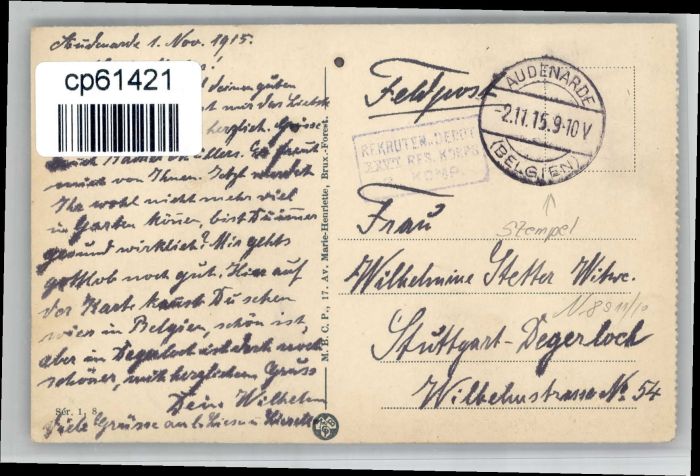 Audenarde 1. Nov. 1915.
cp61421
deinen guten
mir das Liebste
herzlich. Grüsse
freut
mich von Ihnen. Jetzt werdet
Ihr wohl nicht mehr viel
in Garten können, bist Du immer
gesund wirklich? Mir gehts
gottlob noch gut. Hier auf
der Karte kannst Du sehen
wies in Belgien, schön ist,
aber in Degerloch ist doch noch
schöner, mit herzlichem Gruss
Dein Wilhelm
Viele Grüsse an
Sér. 1, 8
M. B. C. F., 17. Av. Marie-Henriette, Brux.-Forest.
Feldpost
AUDENARDE
-2.11.15.9-10V
(BELGIEN)
REKRUTEN-DEPOT
RES. KORPS
KOMP.
Stempel
Frau
Wilhelmine Stetter Witwe.
Stuttgart-Degerloch
Wilhelmstrasse No. 54